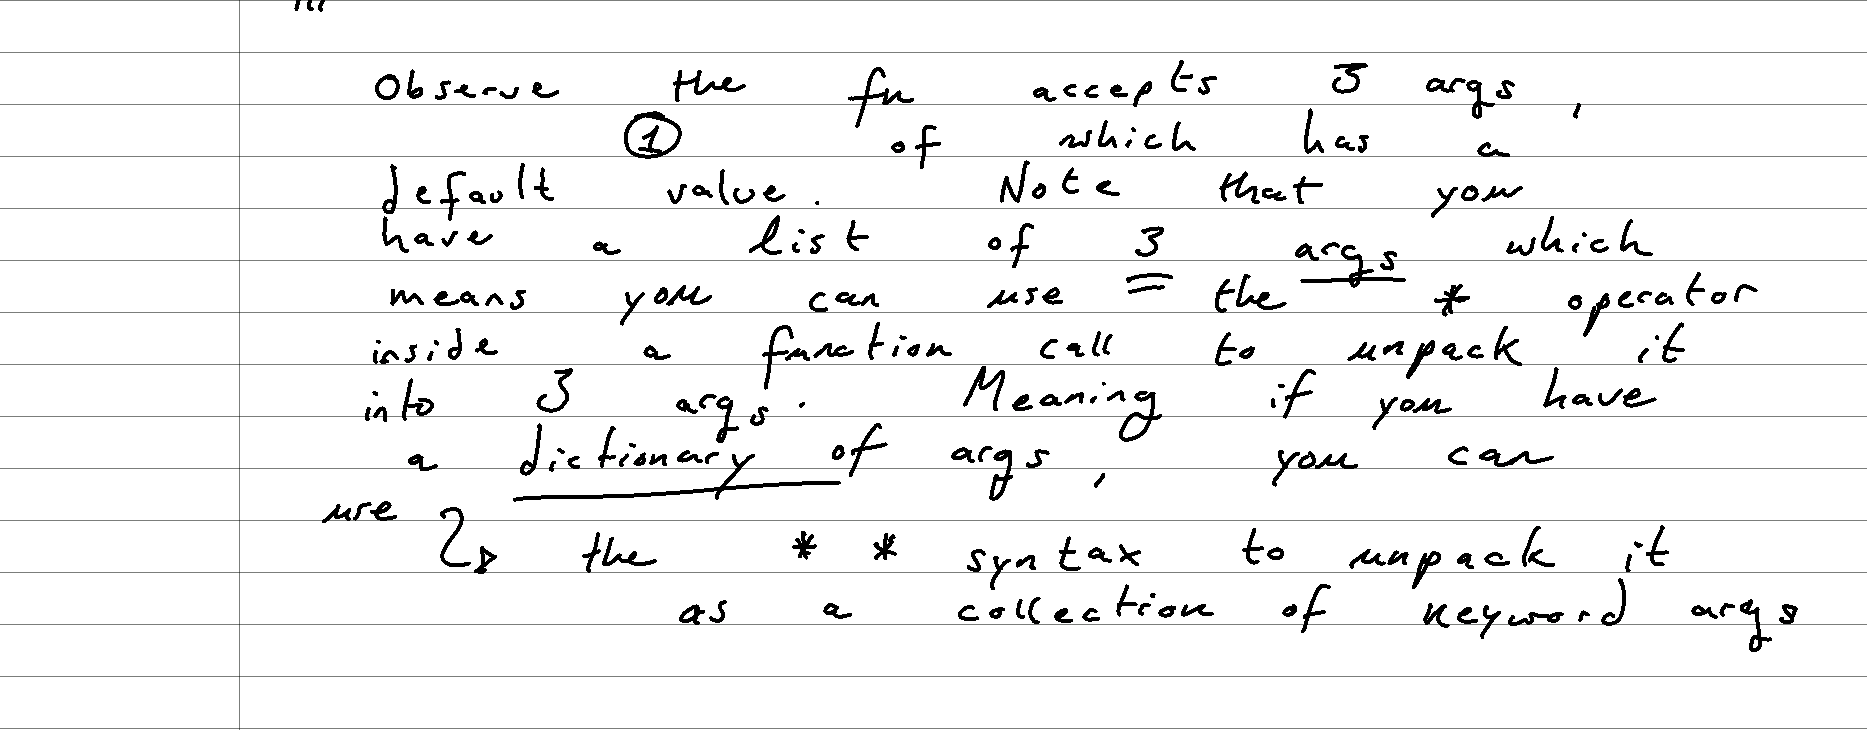 Observe the fn accepts 3 args,
① of which has a
default value. Note that you
have a list of 3 args which
means you can use the * operator
inside a function call to unpack it
into 3 args. Meaning if you have
a dictionary of args, you can
use
the ** syntax to unpack it
as a collection of keyword args